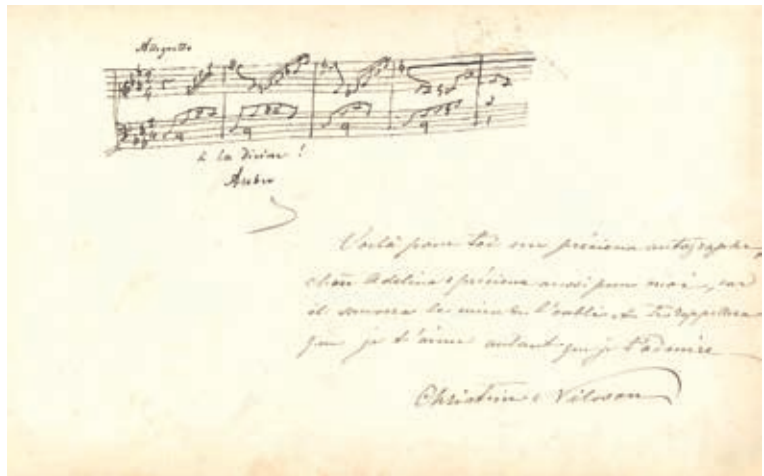 Allegretto
à la Divine !
Auber
Voilà pour toi un précieux autographe,
chère Adelina, précieux aussi pour moi, car
il sauvera le mien de l'oubli et te rappellera
que je t'aime autant que je t'admire
Christine Nilsson